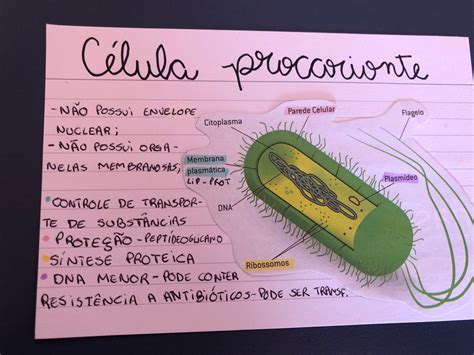 Célula proccorionte
- NÃO POSSUI ENVELOPE
NUCLEAR;
- NÃO POSSUI ORGA-
NELAS MEMBRANOSAS;
Citoplasma
Parede Celular
Flagelo
Membrana
plasmática
LIP-PROT
Plasmídeo
DNA
Ribossomos
• CONTROLE DE TRANSPOR-
TE DE SUBSTÂNCIAS
• PROTEÇÃO - PEPTIDEOGLICANO
• SÍNTESE PROTEICA
• DNA MENOR - PODE CONTER
RESISTÊNCIA A ANTIBIÓTICOS - PODE SER TRANSF.